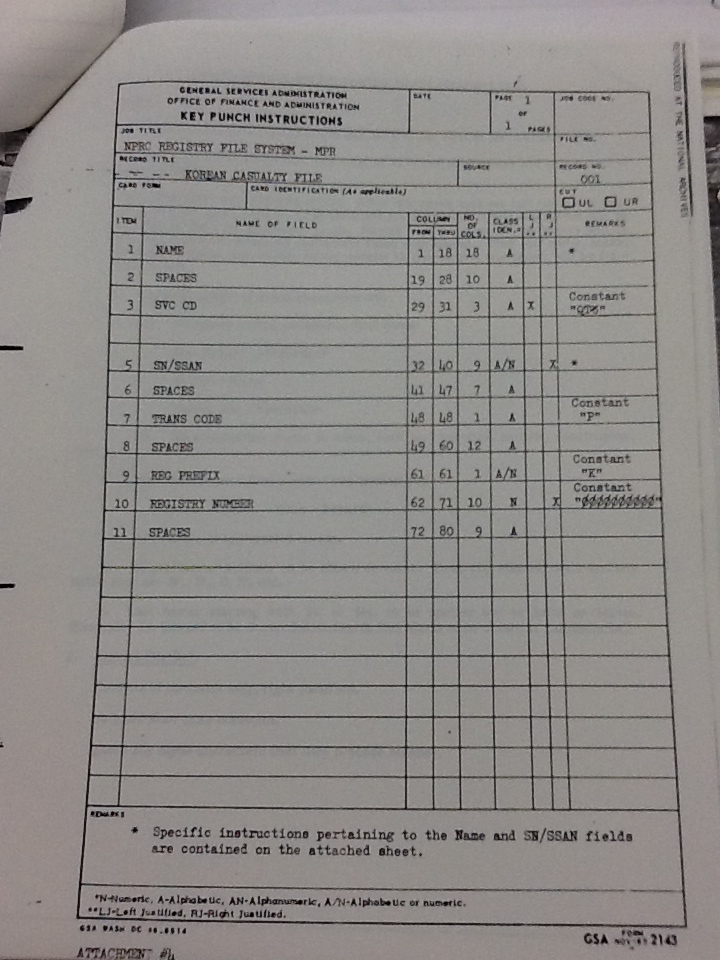 REPRODUCED AT THE NATIONAL ARCHIVES
GENERAL SERVICES ADMINISTRATION
OFFICE OF FINANCE AND ADMINISTRATION
KEY PUNCH INSTRUCTIONS
DATE
PAGE 1
OF
1 PAGES
JOB CODE NO.
JOB TITLE
NPRC REGISTRY FILE SYSTEM - MPR
FILE NO.
RECORD TITLE
KOREAN CASUALTY FILE
SOURCE
RECORD NO.
001
CARD FORM
CARD IDENTIFICATION (As applicable)
CUT
UL UR
ITEM NAME OF FIELD COLUMN FROM THRU NO. OF COLS. CLASS IDEN.* L J ** R J ** REMARKS
1 NAME 1 18 18 A *
2 SPACES 19 28 10 A
3 SVC CD 29 31 3 A X Constant
5 SN/SSAN 32 40 9 A/N X *
6 SPACES 41 47 7 A
7 TRANS CODE 48 48 1 A Constant "P"
8 SPACES 49 60 12 A
9 REG PREFIX 61 61 1 A/N Constant "K"
10 REGISTRY NUMBER 62 71 10 N X Constant
11 SPACES 72 80 9 A
REMARKS
* Specific instructions pertaining to the Name and SN/SSAN fields
are contained on the attached sheet.
*N-Numeric, A-Alphabetic, AN-Alphanumeric, A/N-Alphabetic or numeric.
**LJ-Left Justified, RJ-Right Justified.
GSA WASH DC
GSA FORM 2143
ATTACHMENT #4